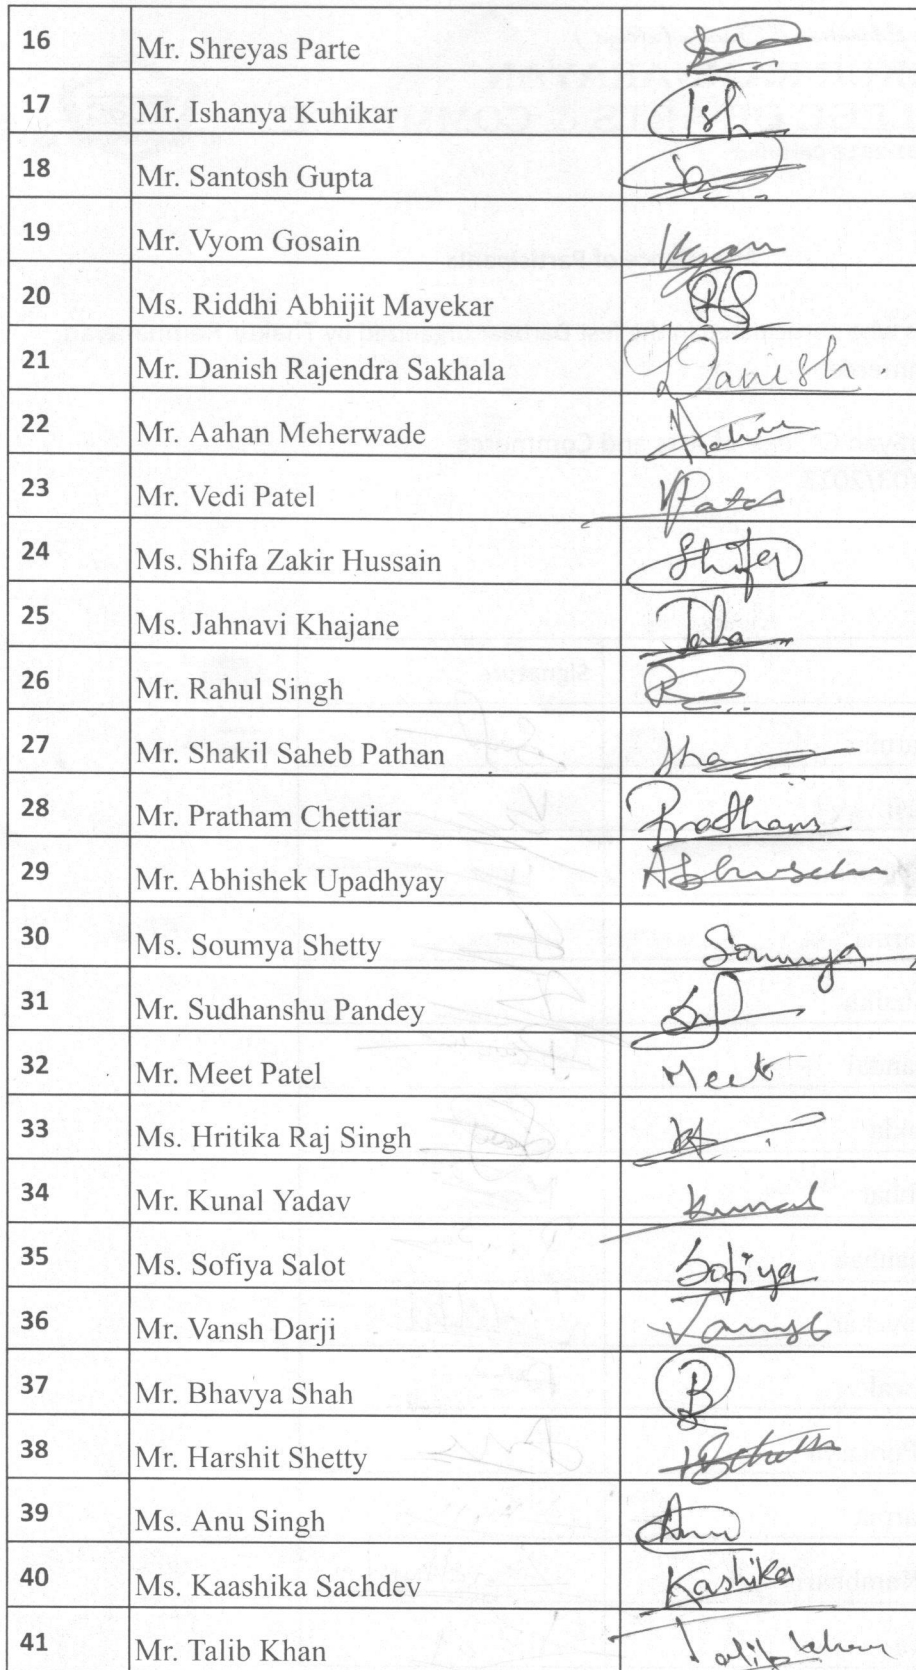 16 Mr. Shreyas Parte
17 Mr. Ishanya Kuhikar Ish
18 Mr. Santosh Gupta
19 Mr. Vyom Gosain Vyom
20 Ms. Riddhi Abhijit Mayekar
21 Mr. Danish Rajendra Sakhala Danish
22 Mr. Aahan Meherwade
23 Mr. Vedi Patel
24 Ms. Shifa Zakir Hussain Shifa
25 Ms. Jahnavi Khajane
26 Mr. Rahul Singh
27 Mr. Shakil Saheb Pathan
28 Mr. Pratham Chettiar Pratham
29 Mr. Abhishek Upadhyay
30 Ms. Soumya Shetty Soumya
31 Mr. Sudhanshu Pandey
32 Mr. Meet Patel Meet
33 Ms. Hritika Raj Singh
34 Mr. Kunal Yadav Kunal
35 Ms. Sofiya Salot Sofiya
36 Mr. Vansh Darji
37 Mr. Bhavya Shah B
38 Mr. Harshit Shetty
39 Ms. Anu Singh Anu
40 Ms. Kaashika Sachdev Kashika
41 Mr. Talib Khan Talib Khan